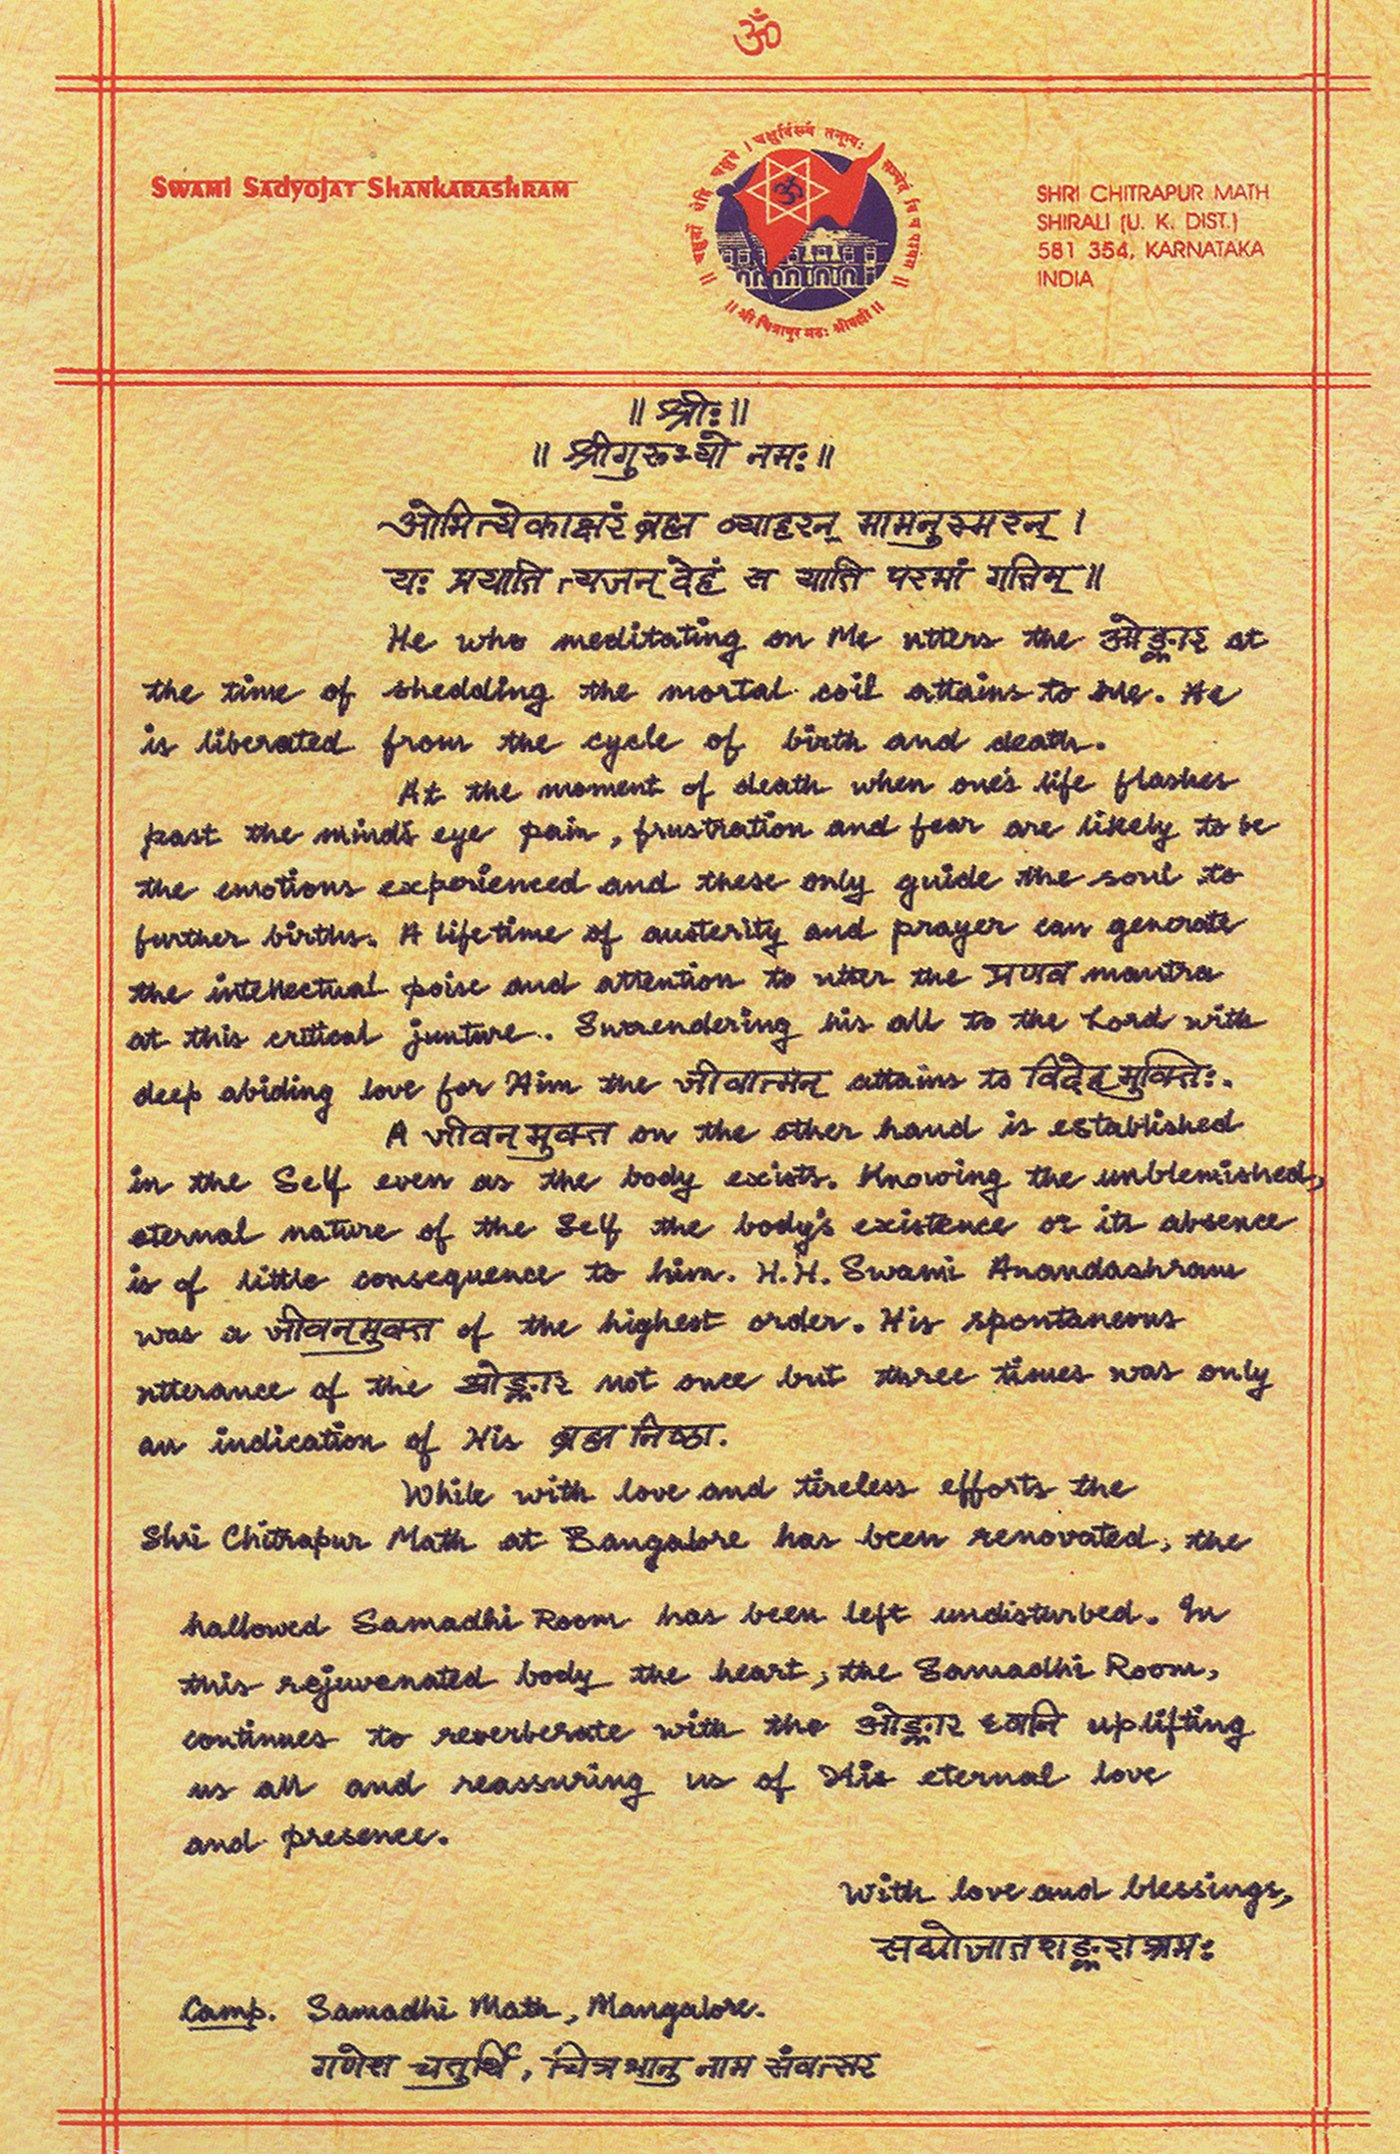 ॐ
SWAMI SADYOJAT SHANKARASHRAM
SHRI CHITRAPUR MATH
SHIRALI (U. K. DIST.)
581 354, KARNATAKA
INDIA
ॐ
॥ श्री चित्रापुर मठः श्रीवल्ली ॥
॥ श्रीः ॥
॥ श्रीगुरुभ्यो नमः ॥
ओमित्येकाक्षरं ब्रह्म व्याहरन् मामनुस्मरन् ।
यः प्रयाति त्यजन् देहं स याति परमां गतिम् ॥
He who meditating on Me utters the ओङ्कार at
the time of shedding the mortal coil attains to Me. He
is liberated from the cycle of birth and death.
At the moment of death when one's life flashes
past the mind's eye pain, frustration and fear are likely to be
the emotions experienced and these only guide the soul to
further births. A lifetime of austerity and prayer can generate
the intellectual poise and attention to utter the प्रणव mantra
at this critical junture. Surrendering his all to the Lord with
deep abiding love for Him the जीवात्मन् attains to विदेहमुक्तिः.
A जीवन्मुक्त on the other hand is established
in the Self even as the body exists. Knowing the unblemished,
eternal nature of the Self the body's existence or its absence
is of little consequence to him. H.H. Swami Anandashram
was a जीवन्मुक्त of the highest order. His spontaneous
utterance of the ओङ्कार not once but three times was only
an indication of His ब्रह्मनिष्ठा.
While with love and tireless efforts the
Shri Chitrapur Math at Bangalore has been renovated, the
hallowed Samadhi Room has been left undisturbed. In
this rejuvenated body the heart, the Samadhi Room,
continues to reverberate with the ओङ्कार ध्वनि uplifting
us all and reassuring us of His eternal love
and presence.
With love and blessings,
सद्योजातशङ्कराश्रमः
Camp. Samadhi Math, Mangalore.
गणेश चतुर्थि, चित्रभानु नाम संवत्सर